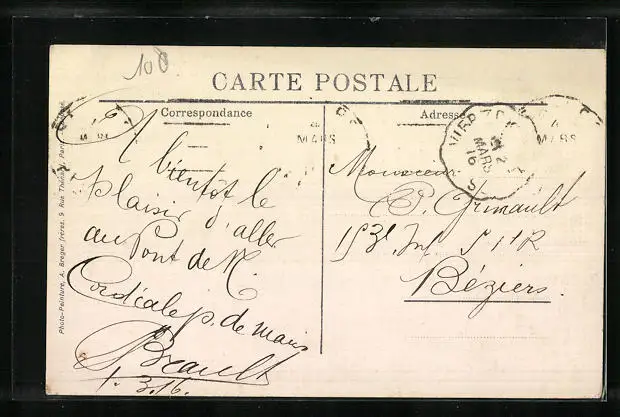 100
CARTE POSTALE
Correspondance
Adresse
MARS
MARS
MARS
16
Photo-Peinture, A. Breger frères. 9 Rue Thénard, Paris
A bientôt le
plaisir d'aller
au Pont de M.
Cordiale p. de main
Breault
1. 3. 16.
Monsieur
P. Grimault
Béziers.